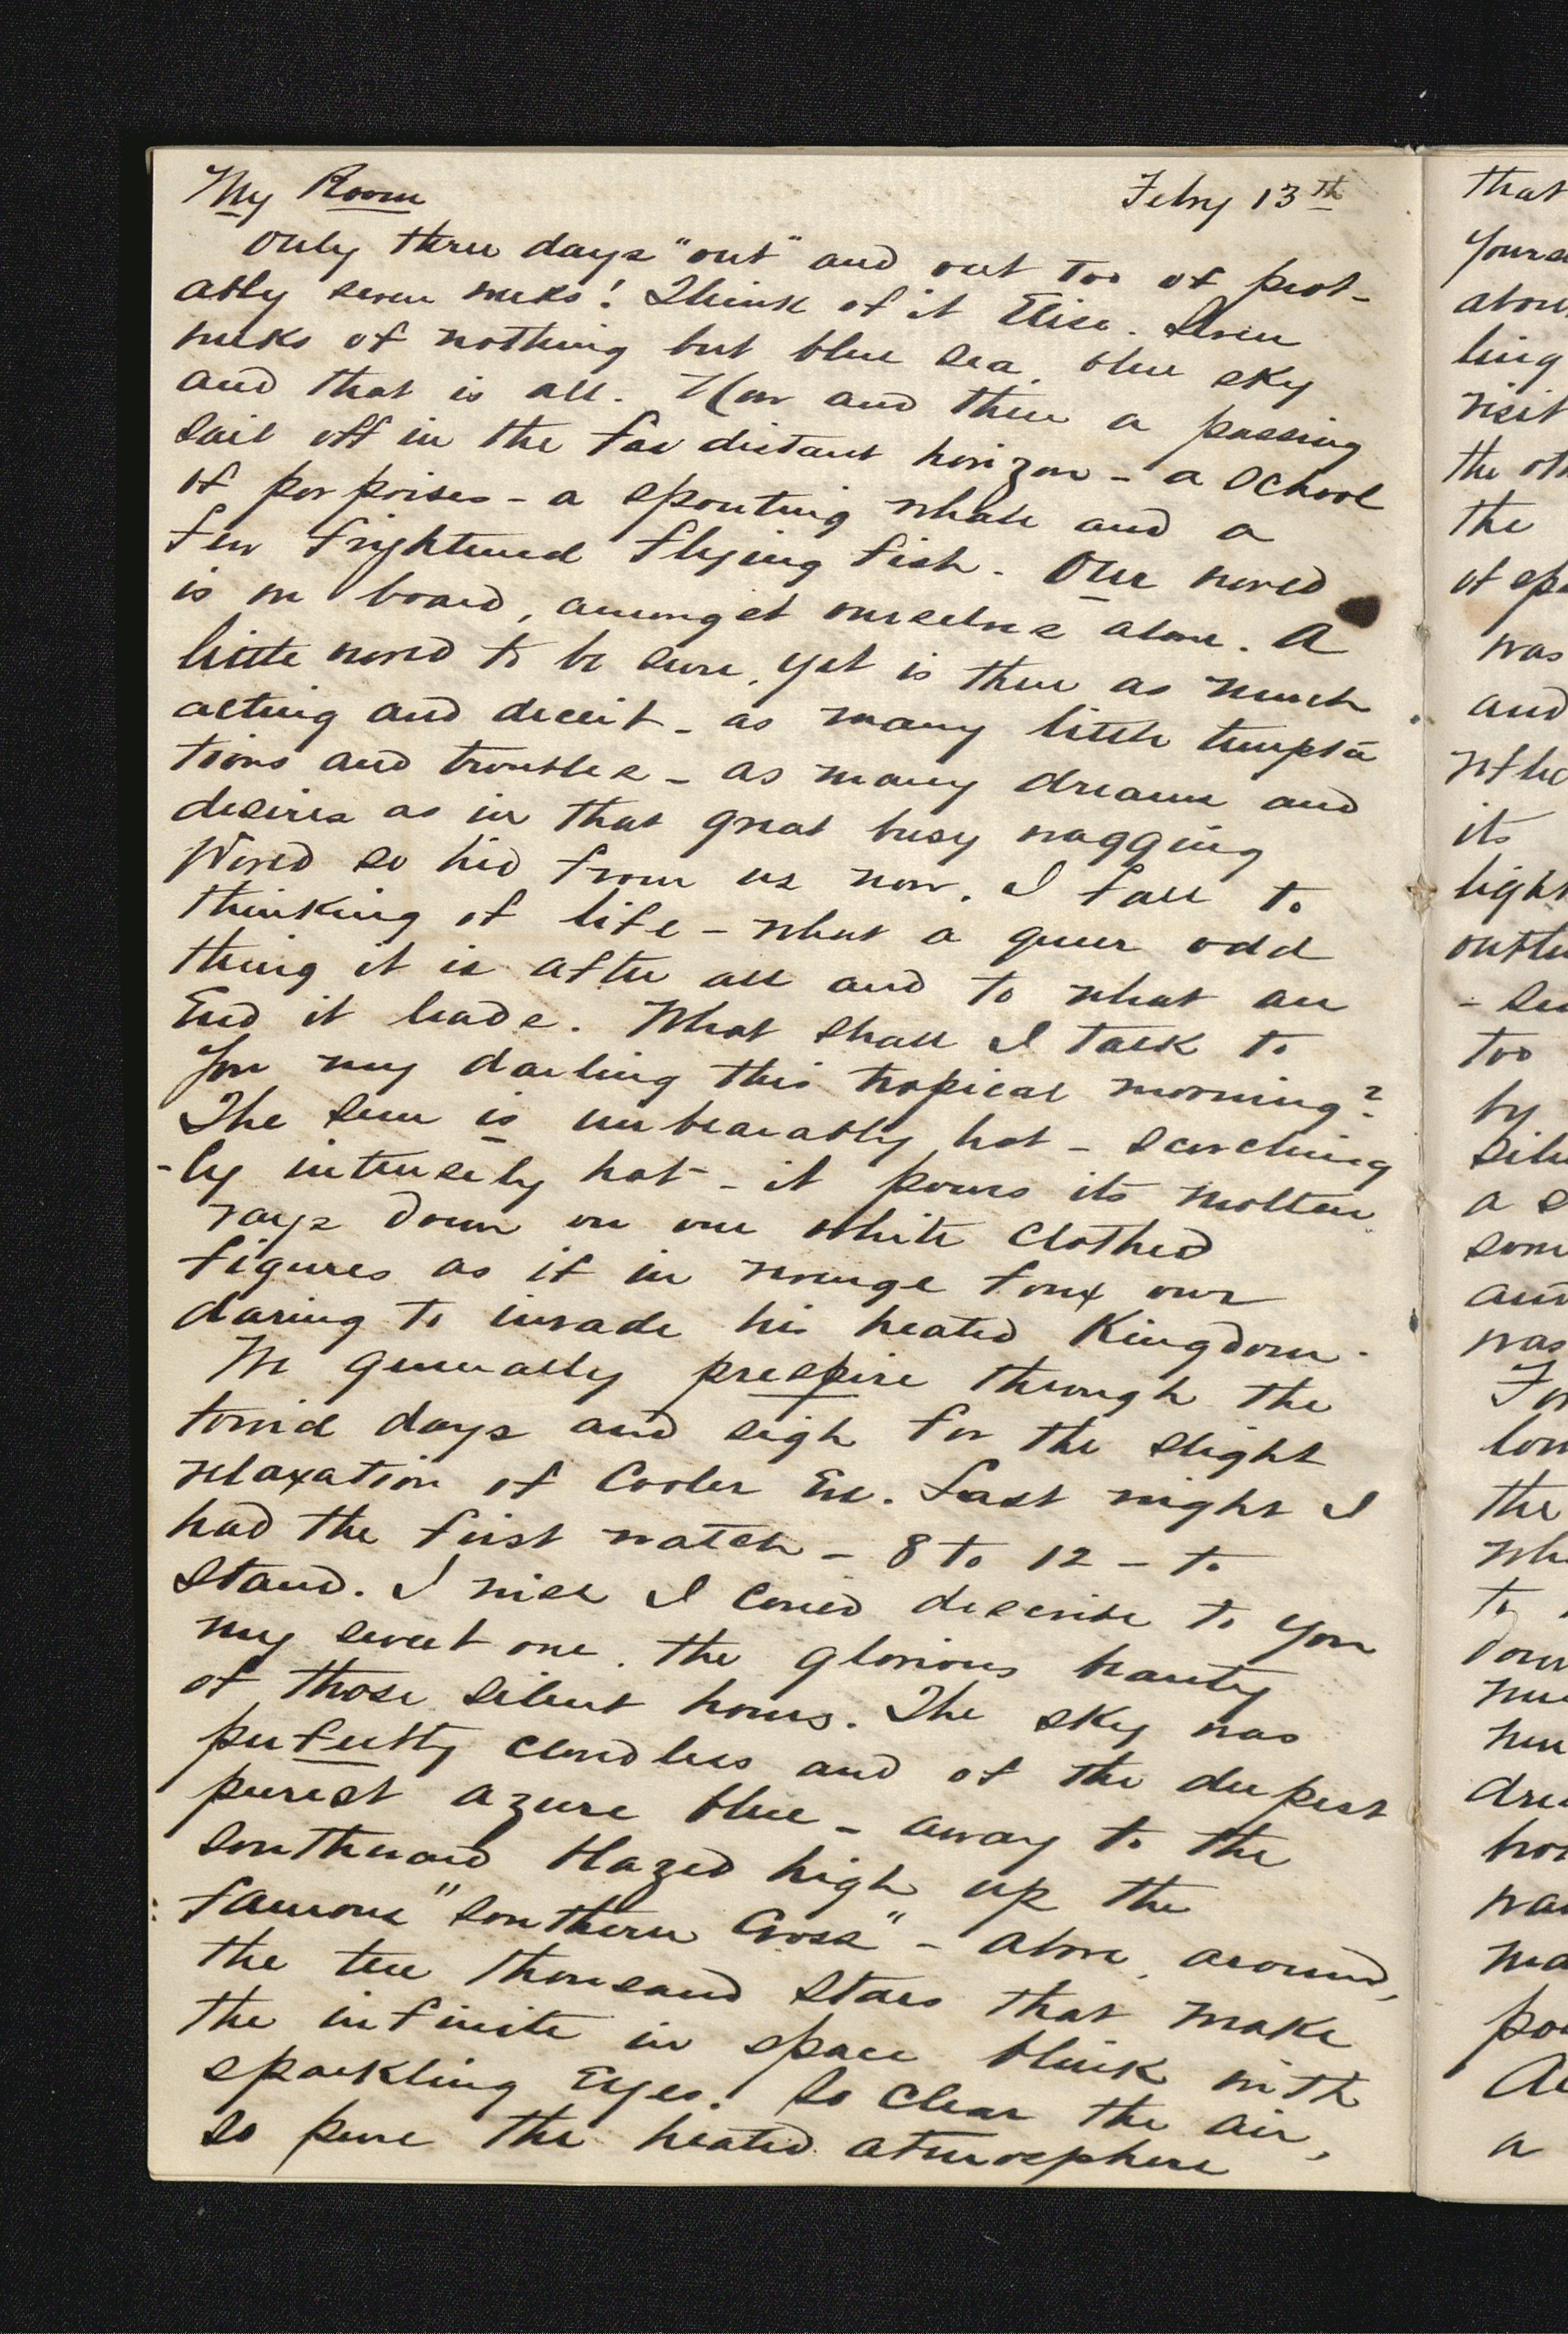 My Room Febry 13th
Only three days "out" and out too of prob-
ably seven weeks! Think of it Elise. Seven
weeks of nothing but blue sea, blue sky
and that is all. Now and then a passing
sail off in the far distant horizon - a school
of porpoises - a spouting whale and a
few frightened flying fish. Our world
is on board, amongst ourselves alone. A
little world to be sure, yet is there as much
acting and deceit - as many little tempta
tions and troubles - as many dreams and
desires as in that great busy nagging
World so hid from us now. I fall to
thinking of life - what a queer odd
thing it is after all and to what an
End it leads. What shall I talk to
you my darling this tropical morning?
The sun is unbearably hot - scorching
-ly intensely hot - it pours its molten
rays down on our white clothed
figures as if in revenge for our
daring to invade his heated Kingdom.
We generally prespire through the
torrid days and sigh for the slight
relaxation of Cooler Eve. Last night I
had the first watch - 8 to 12 - to
stand. I wish I could describe to you
my sweet one, the glorious beauty
of those silent hours. The sky was
perfectly cloudless and of the deepest
purest azure blue - away to the
southward blazed high up the
famous "Southern Cross" - above, around,
the ten thousand stars that make
the infinite in space blink with
sparkling Eyes. So clear the air,
so pure the heated atmosphere
that
the
was
and
its
light
too
by
a
the
to
a